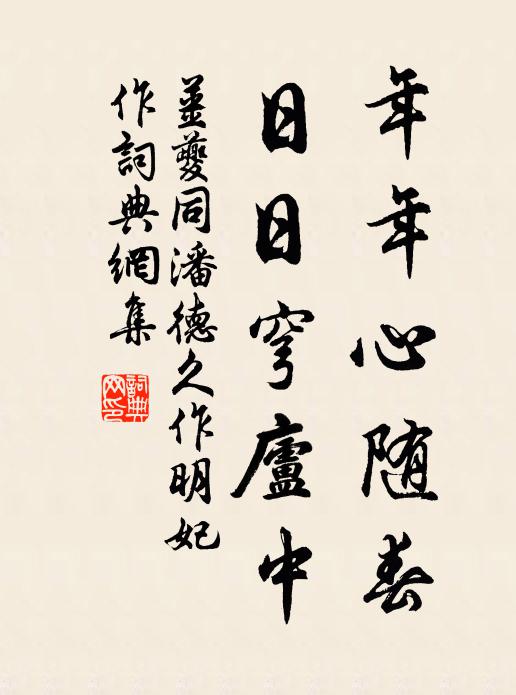 年年心随春
日日穹廬中
姜夔同潘德久作明妃
作詞典網集
詞典網印